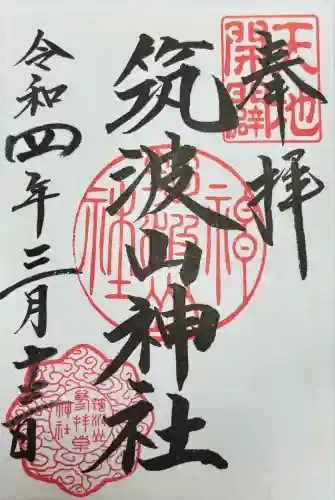 奉拝
天地開闢
筑波山神社
筑波山神社
令和四年三月十三日
筑波山神社拝堂